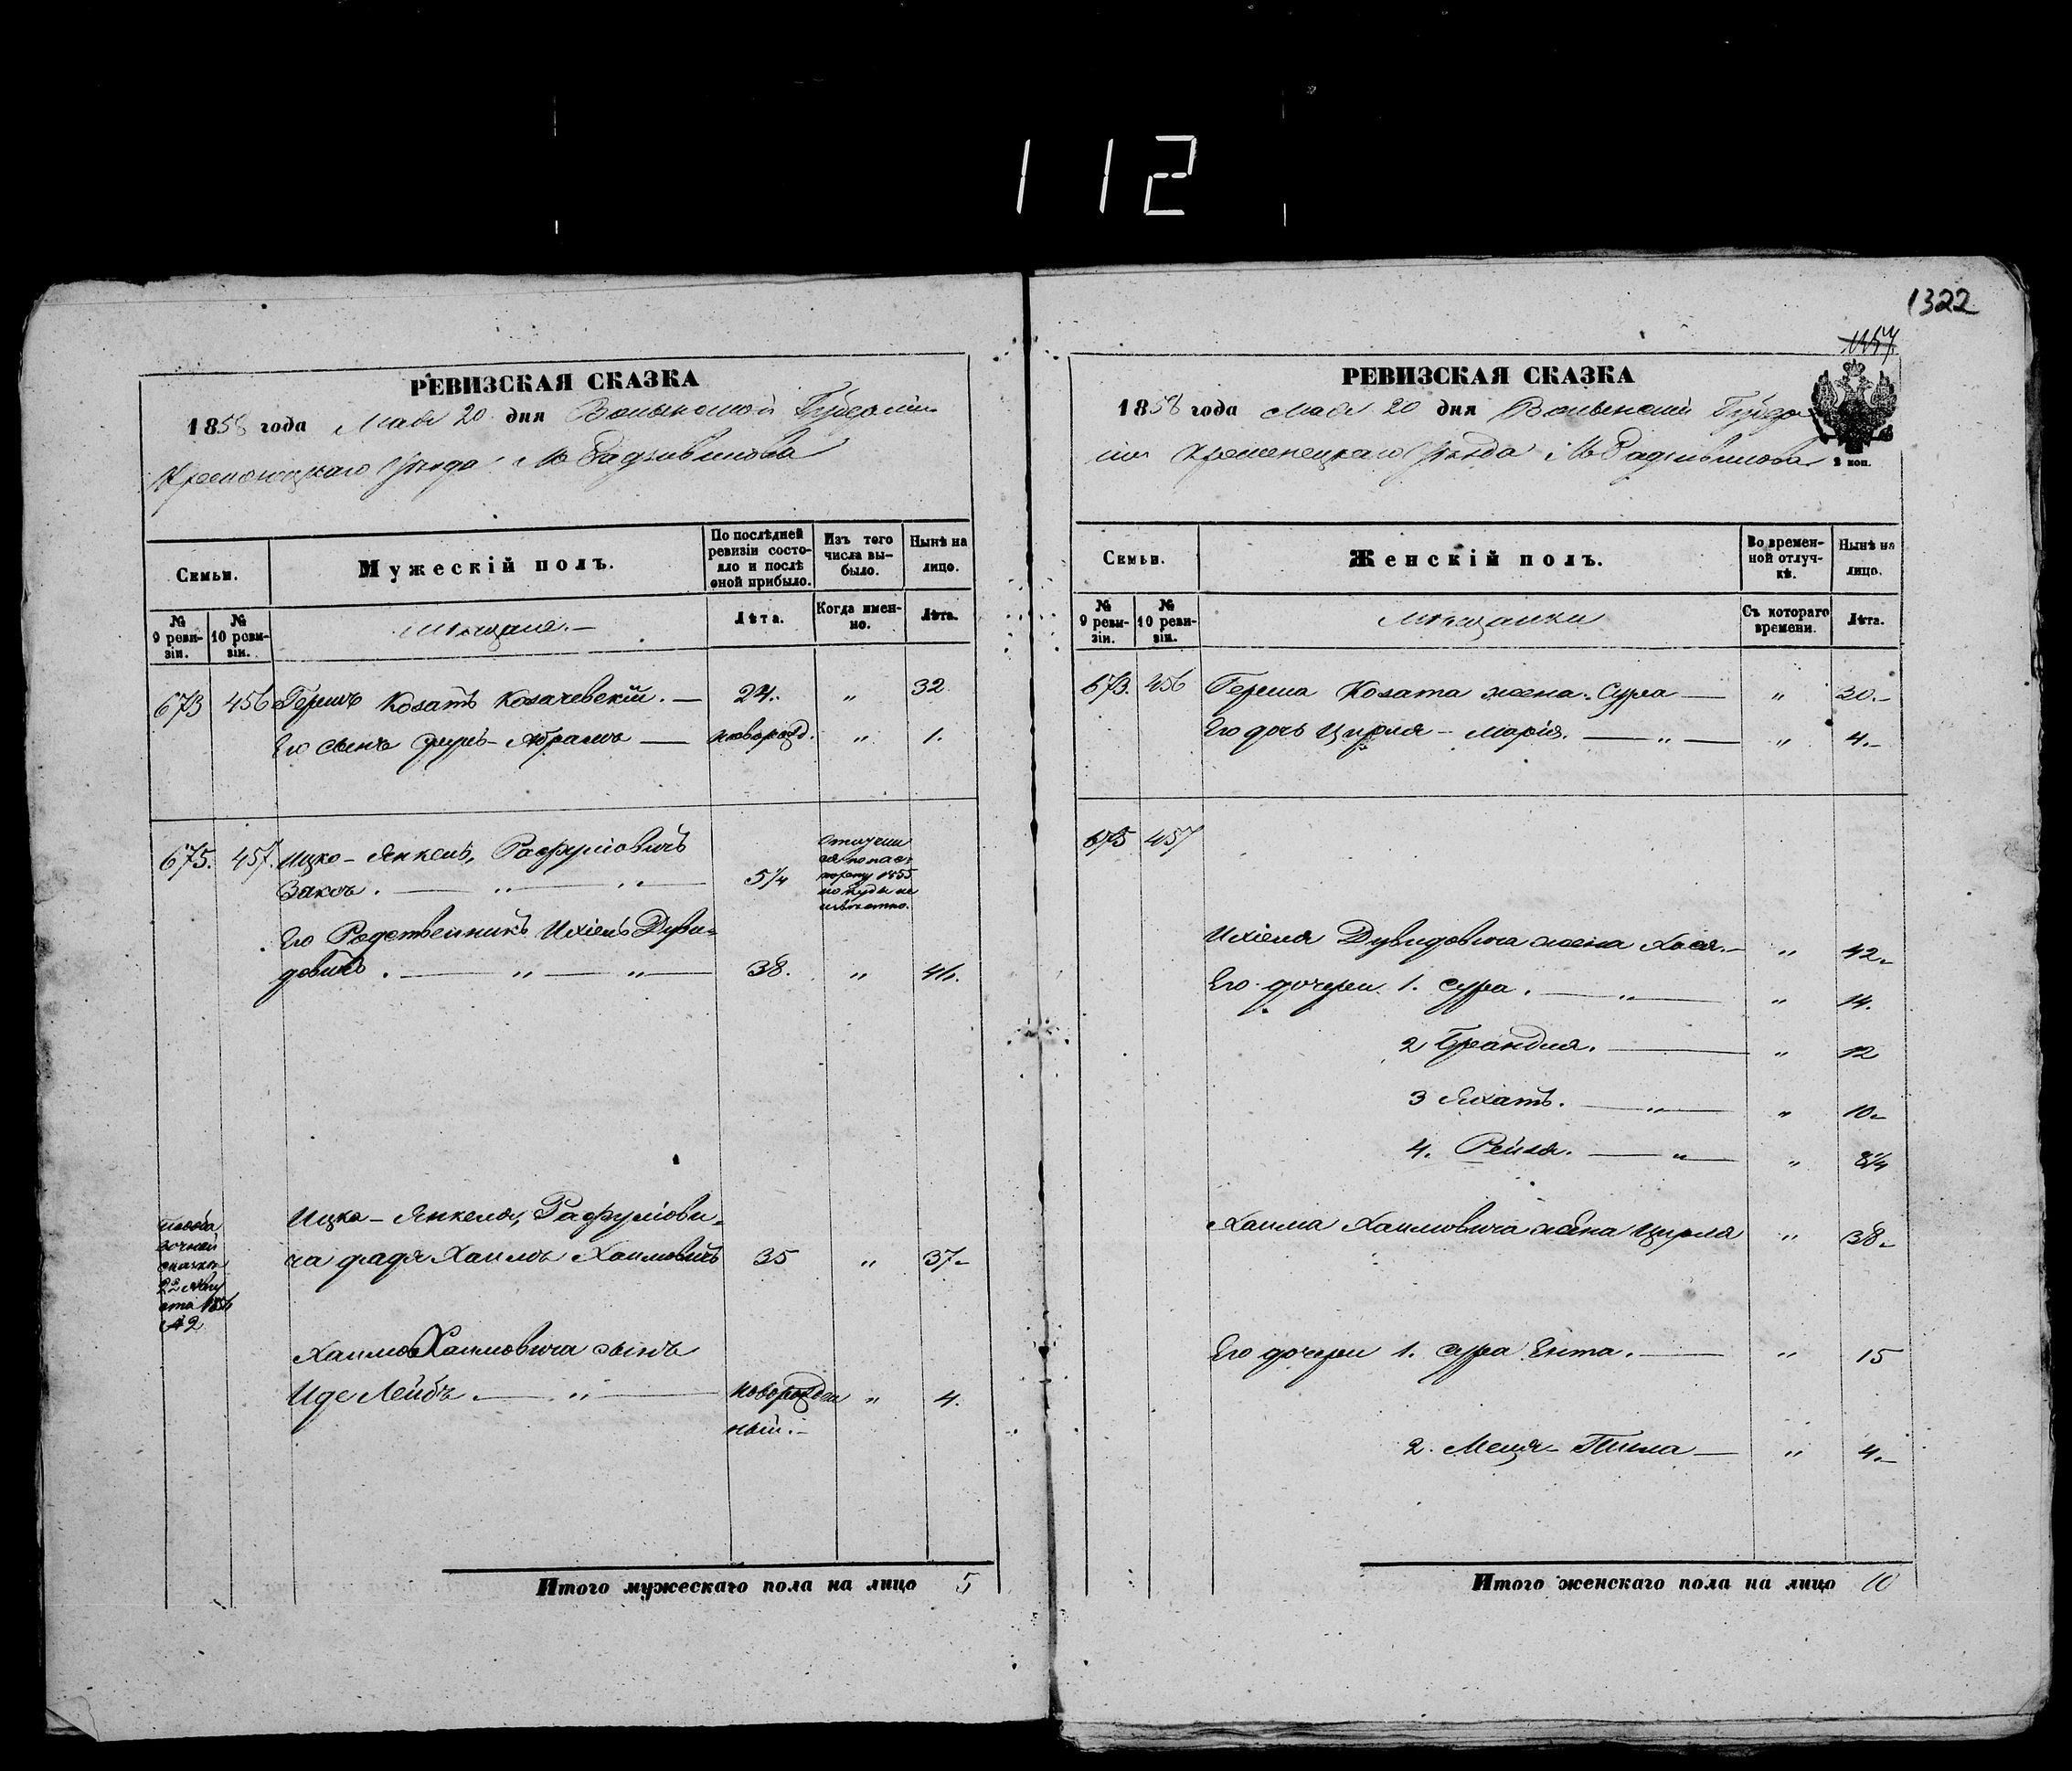 112
1322
1157
РЕВИЗСКАЯ СКАЗКА
1858 года Мая 20 дня Волынской Губерніи
Кременецкаго Уѣзда М Радзивилова
Семьи.
Мужескій полъ.
По послѣдней ревизіи состояло и послѣ оной прибыло.
Изъ того числа выбыло.
Нынѣ на лицо.
№ 9 ревизіи.
№ 10 ревизіи.
Мѣщане.
Лѣта.
Когда именно.
Лѣта.
673 456 Гершъ Козатъ Козачевскій. — 24. " 32
Его сынъ Абрамъ — новорожд. " 1.
675. 457. Ицко-Янкель, Рафуловичъ
Заксъ. — " — " 51/4
Отлучился по паспорту 1855 но куда не извѣстно.
Его Родственникъ Ихіель Дуви-
довичъ. — " — " 38. " 46.
Ицка-Янкеля, Рафулови-
ча дядя Хаимъ Хаимовичъ 35 " 37
сказкѣ
22
№ 2
Хаима Хаимовича сынъ
Иде Лейбъ. — " новорожден " 4.
ный.
Итого мужескаго пола на лицо 5
РЕВИЗСКАЯ СКАЗКА
1858 года Мая 20 дня Волынской Губер
ніи Кременецкаго Уѣзда М Радзивилова
2 коп.
Семьи.
Женскій полъ.
Во временной отлучкѣ.
Нынѣ на лицо.
№ 9 ревизіи.
№ 10 ревизіи.
Мѣщанки
Съ котораго времени.
Лѣта.
673. 456 Герша Козата жена Сура — " 30.
Его дочь Цирля-Марія. — " — " 4.
675 457
Ихіеля Дувидовича жена Хася. " 42
Его дочери 1. Сура. — " " 14.
2 Брандля. — " 12
3 Яхатъ. — " " 10
4. Рейзя. — " " 81/4
Хаима Хаимовича жена Цирля " 38
Его дочери 1. Сура Ента. — " 15
2. Меця-Типа — " 4.
Итого женскаго пола на лицо 10